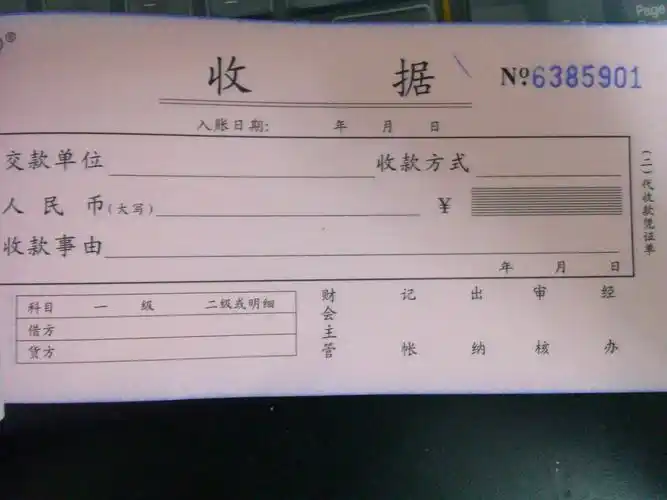 ®
收 据 №6385901
入账日期: 年 月 日
交款单位 收款方式
人 民 币(大写) ¥
收款事由
年 月 日
(二)代收款凭证单
科目 一 级 二级或明细
借方
货方
财会主管 记 帐 出 纳 审 核 经 办
Page